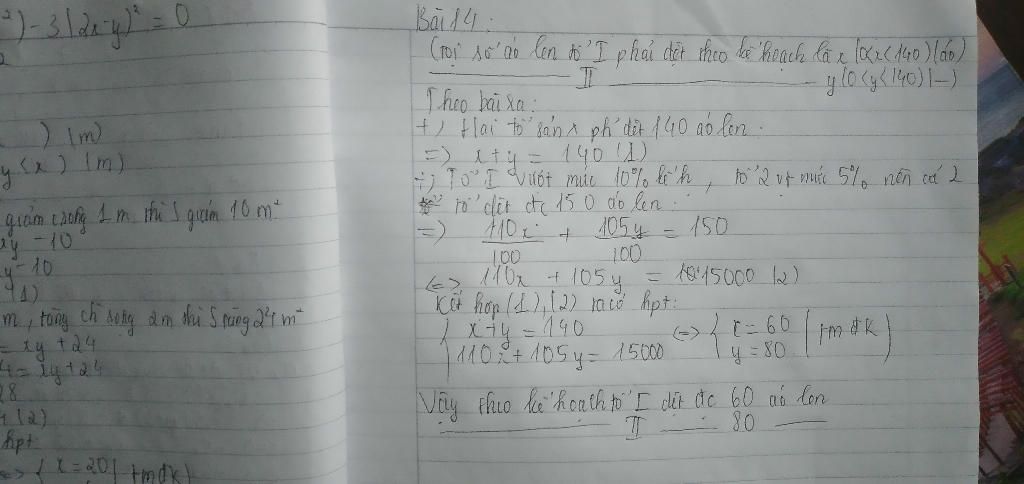 ²) - 3(2x-y)² = 0
) (m)
y(x) (m)
giảm trong 1m thì S giảm 10m²
xy - 10
y - 10
(1)
m, tăng ch rộng 2m thì S tăng 24m²
= xy + 24
4 = xy + 24
28
(2)
hpt:
<=> { x = 20 ( +mđk)
Bài 14:
Gọi số áo len tổ I phải dệt theo kế hoạch là x (0<x<140) (áo)
II y (0<y<140) (—)
Theo bài ra:
+) Hai tổ sản x phải dệt 140 áo len.
=> x + y = 140 (1)
+) Tổ I vượt mức 10% kế h, tổ 2 vt mức 5% nên cả 2
tổ dệt đc 150 áo len:
=> 110x/100 + 105y/100 = 150
<=> 110x + 105y = 15000 (2)
Kết hợp (1), (2) ta có hpt:
{ x + y = 140 <=> { x = 60 ( +m đk)
110x + 105y = 15000 y = 80
Vậy theo kế hoạch tổ I dệt đc 60 áo len
II 80